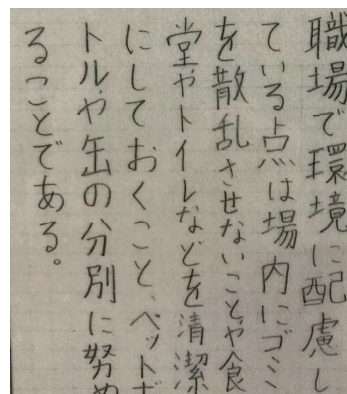 職場で環境に配慮し
ている点は場内にゴミ
を散乱させないことや食
堂やトイレなどを清潔
にしておくこと、ペットボ
トルや缶の分別に努め
ることである。